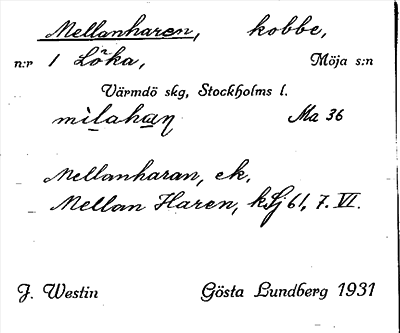 Mellanharen, kobbe,
n:r 1 Löka, Möja s:n
Värmdö skg, Stockholms l.
milahan Ma 36
Mellanharan, ek.
Mellan Haren, kSj 61, 7. VI.
J. Westin Gösta Lundberg 1931